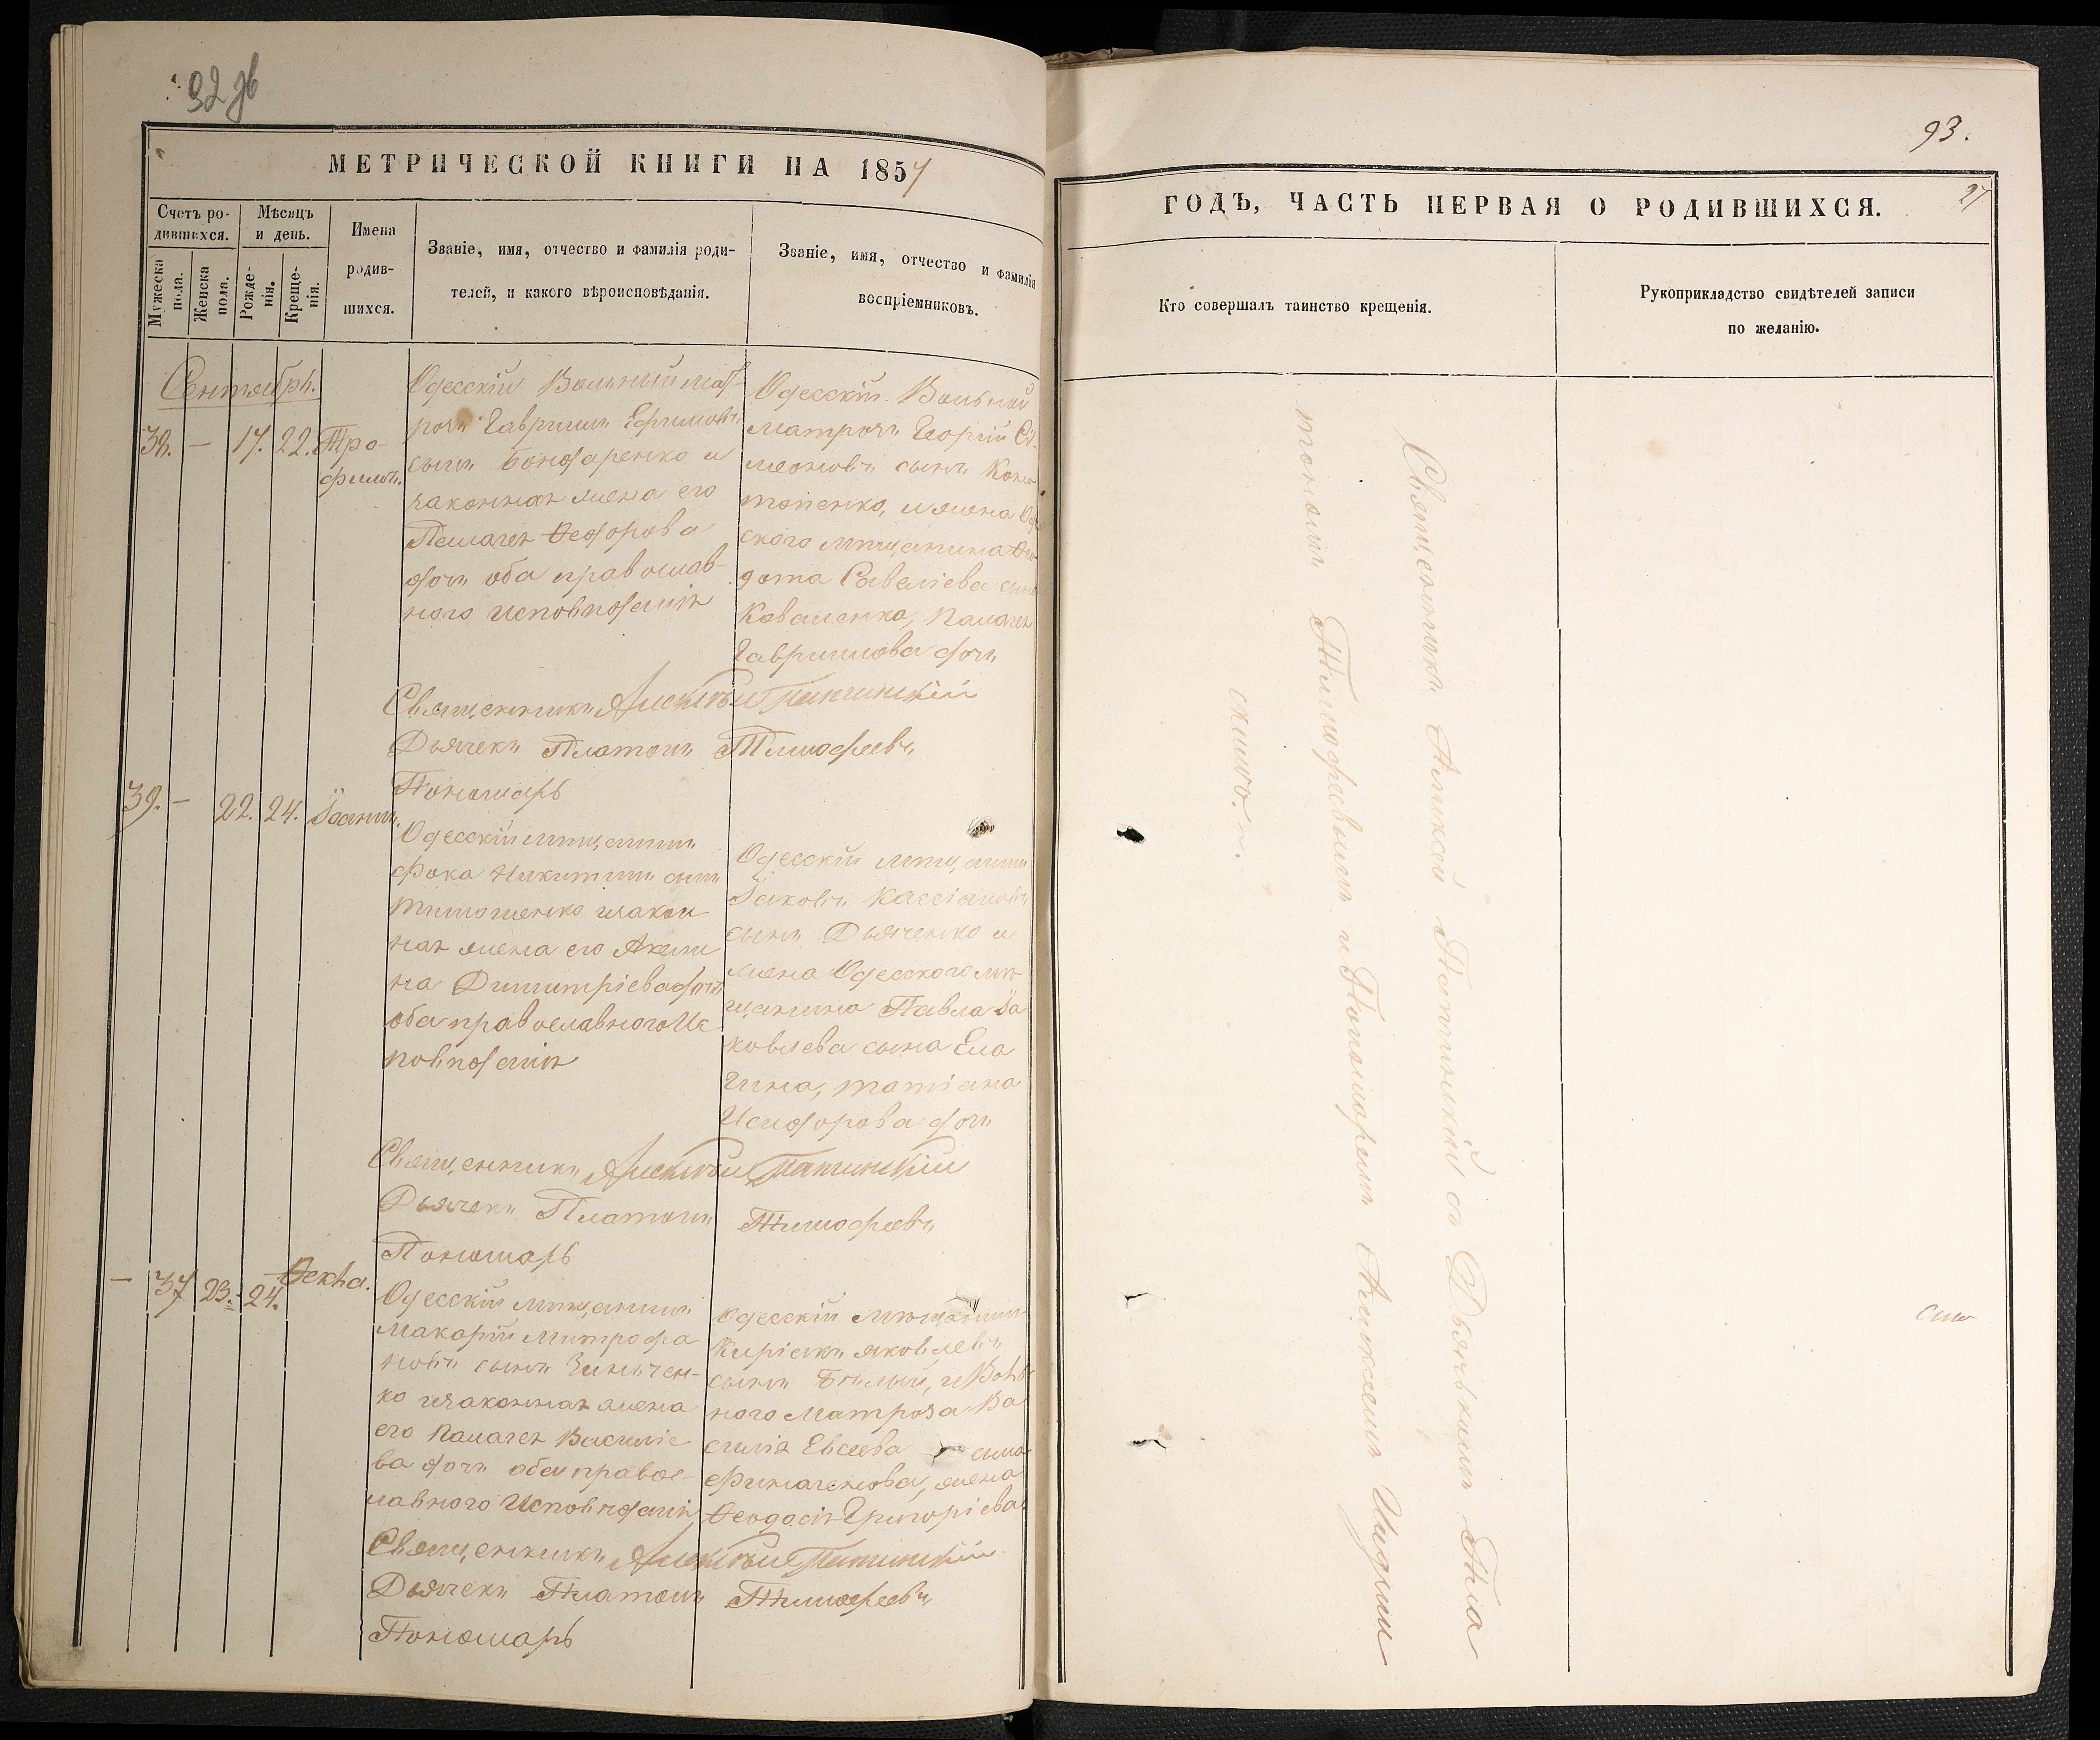 92 об
МЕТРИЧЕСКОЙ КНИГИ НА 1857
Счетъ ро-
дившихся.
Мѣсяцъ
и день.
Мужеска
пола.
Женска
пола.
Рожде-
нія.
Креще-
нія.
Имена
родив-
шихся.
Званіе, имя, отчество и фамилія роди-
телей, и какого вѣроисповѣданія.
Званіе, имя, отчество и фамилія
воспріемниковъ.
Сентябрь.
38. — 17. 22. Тро-
фимъ.
Одесскій Вольный мат-
розъ Гавріилъ Ефимовъ
сынъ Бондаренко и
законная жена его
Пелагея Ѳеодорова
дочь оба православ-
ного исповѣданія
Одесскій Вольной
матрозъ Георгій Си-
меоновъ сынъ Коно-
топенко, и жена Оде
ского мѣщанина Ѳео
дота Савеліева сына
Коваленка, Палагея
Гавриилова дочь
Священникъ Алексѣй
Дьячекъ Платонъ Тимофеевъ
Пономарь
39. — 22. 24. Іоаннъ.
Одесскій мѣщанинъ
Фока Никитинъ сынъ
Тимошенко изакон
ная жена его Акили
на Димитріева дочь
оба православного Ис
повѣданія
Одесскій мѣщанинъ
Іаковъ Кассіановъ
сынъ Дьяченко и
жена Одесского мѣ-
щанина Павла Іа
ковлева сына Ела
гина, татіана
Исидорова дочь
Священникъ Алексѣй
Дьячекъ Платонъ Тимофеевъ
Пономарь
— 37 23. 24. Ѳекла.
Одесскій мѣщанинъ
Макарій Митрофа
новъ сынъ Зинчен-
ко изаконная жена
его Палагея Василіе
ва дочь оба правос-
лавного Исповѣданія
Одесскій мѣщанинъ
Киріакъ яковлевъ
сынъ Бѣлый, и Воль
ного Матроза Ва
силія Евсеева сына
Финагенова, жена
Ѳеодосія Григоріева
Священникъ Алексѣй
Дьячекъ Платонъ Тимофеевъ
Пономарь
93.
27
ГОДЪ, ЧАСТЬ ПЕРВАЯ О РОДИВШИХСЯ.
Кто совершалъ таинство крещенія.
Рукоприкладство свидѣтелей записи
по желанію.
Священникъ Алексѣй съ Дьячькомъ Пла
тономъ Тимофеевымъ и Пономаремъ Алексеемъ